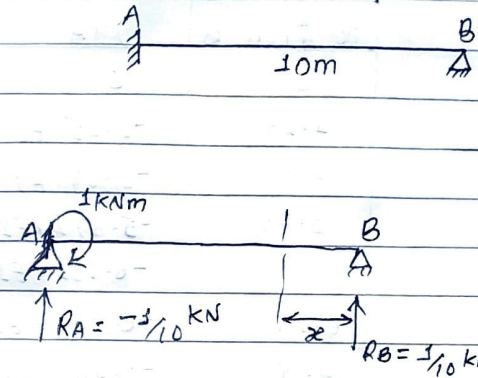 A
B
10m
1kNm
A
B
RA = -1/10 kN
x
RB = 1/10 k